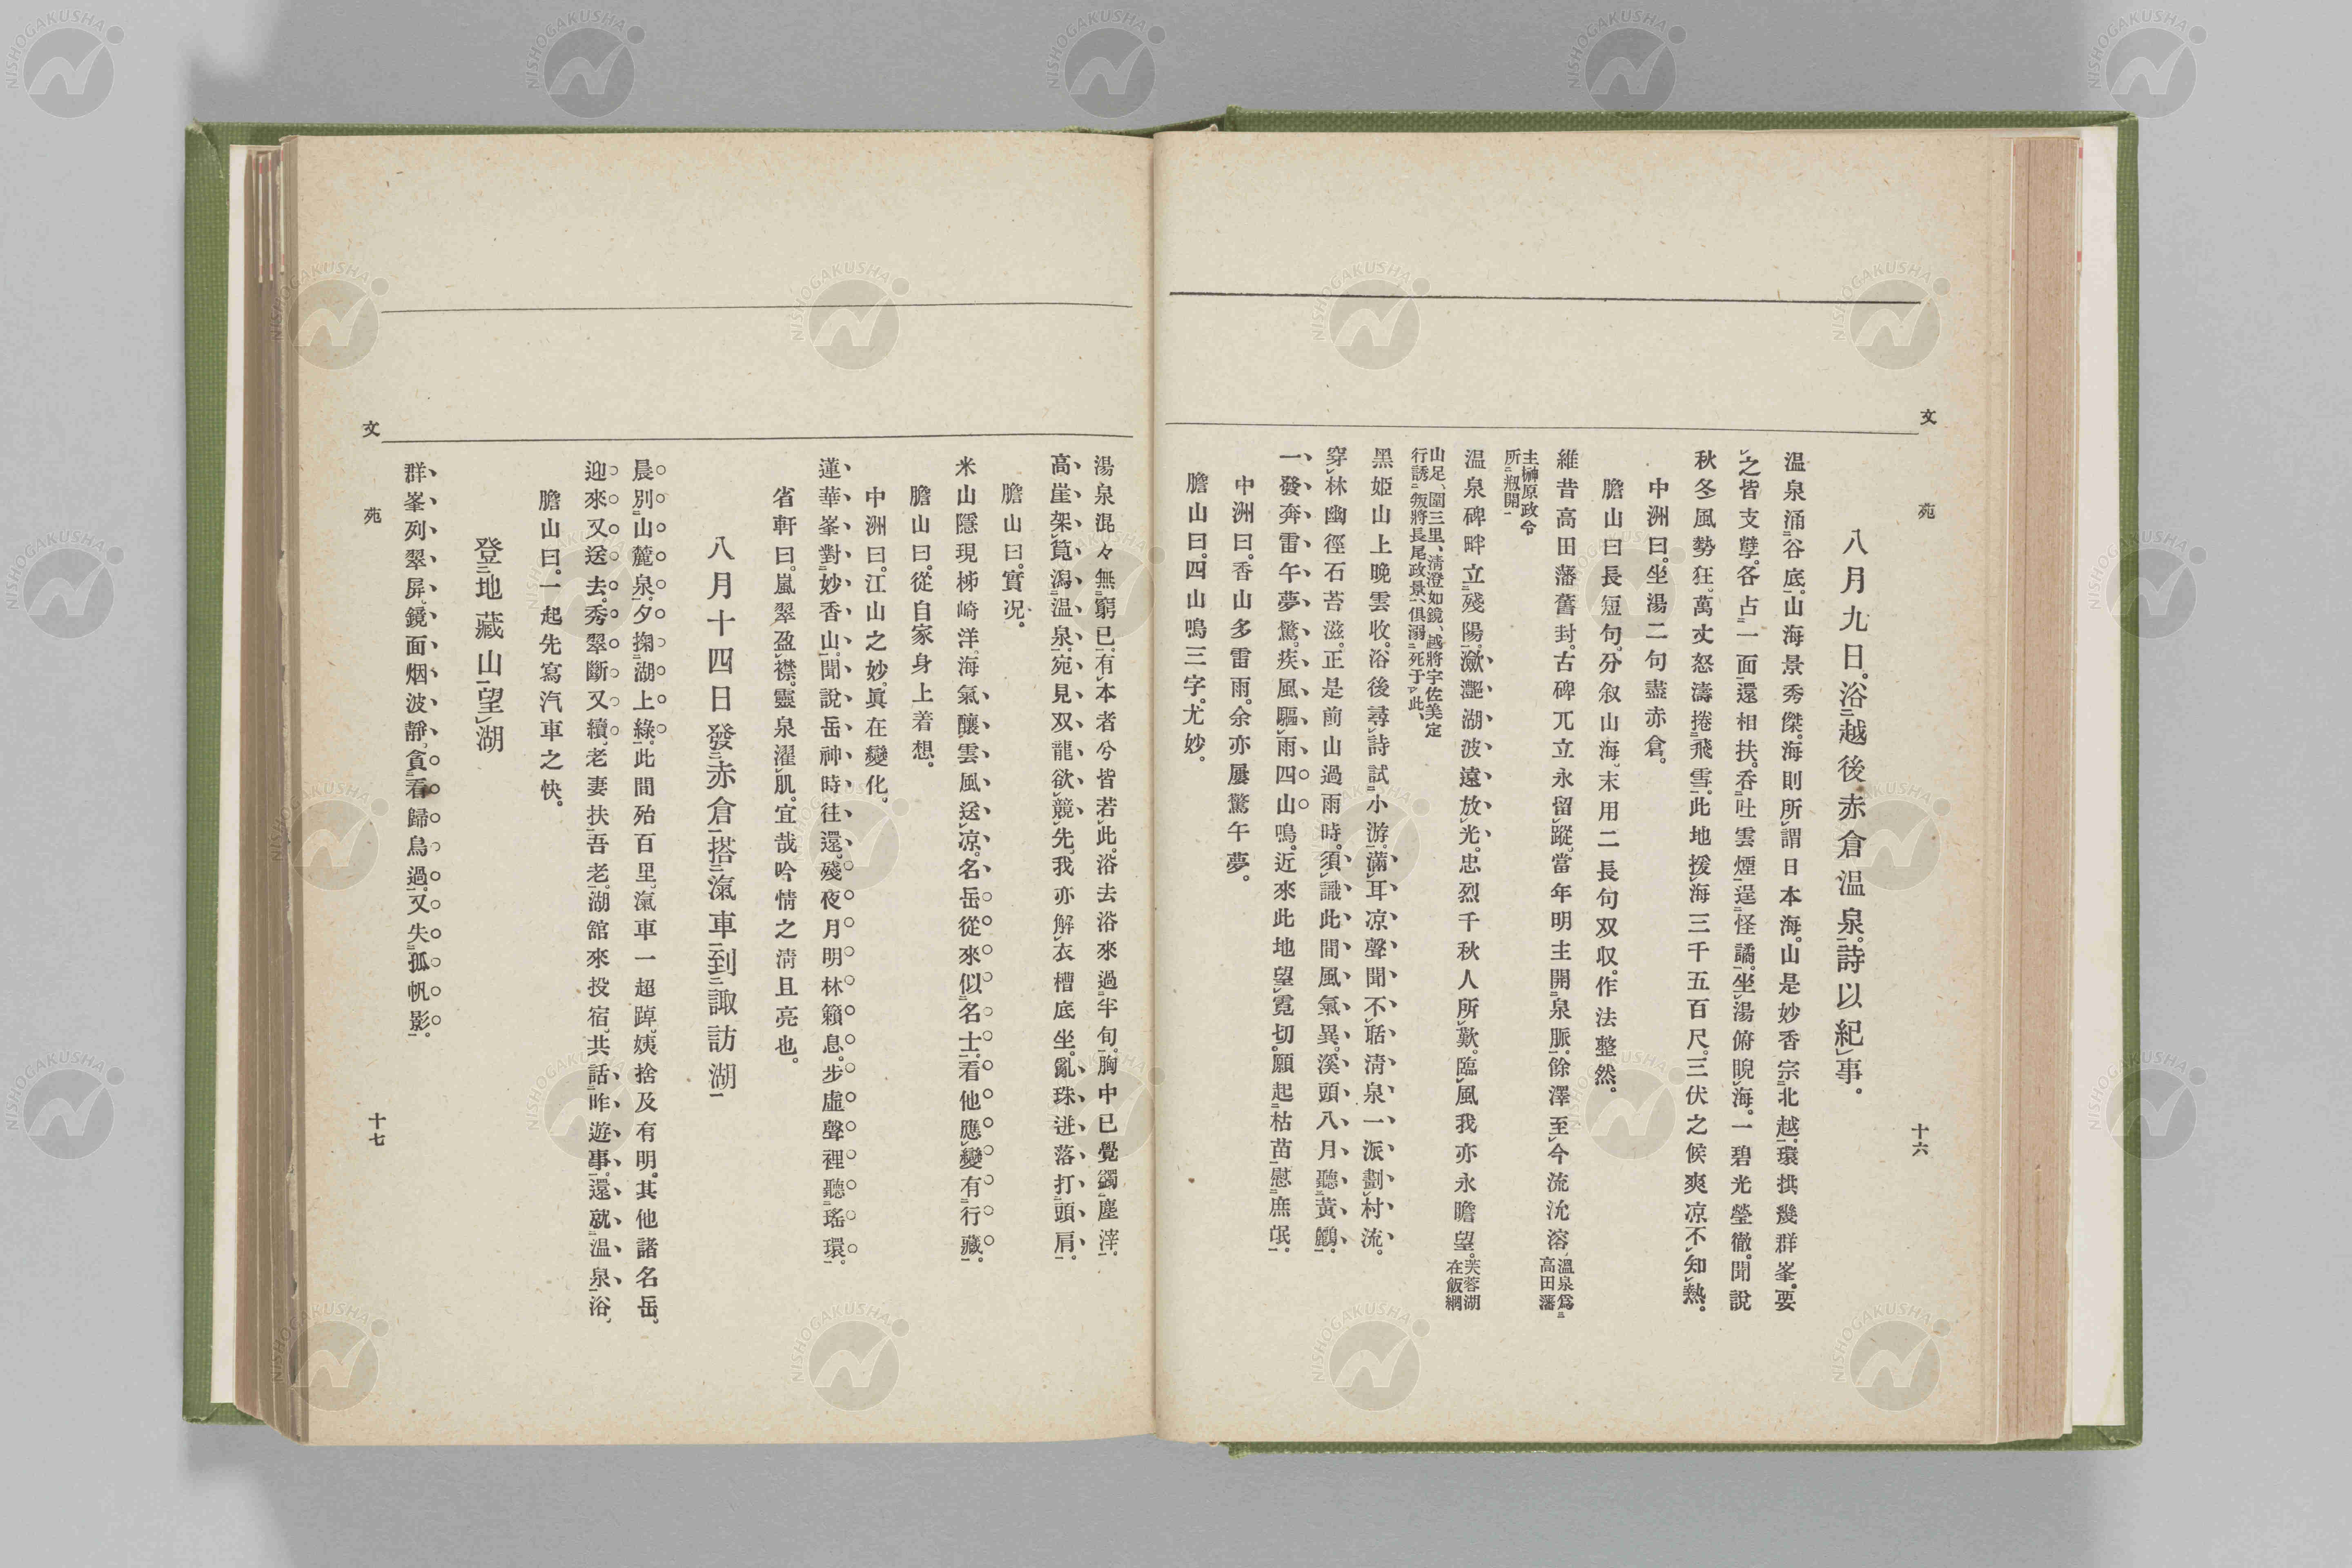 文 苑 十六
八月九日。浴越後赤倉温泉。詩以紀事。
温泉涌谷底。山海景秀傑。海則所謂日本海。山是妙香宗北越。環拱幾群峯。要
之皆支孽。各占一面還相扶。呑吐雲煙逞怪譎。坐湯俯睨海。一碧光瑩徹。聞説
秋冬風勢狂。萬丈怒濤捲飛雪。此地援海三千五百尺。三伏之候爽凉不知熱。
中洲曰。坐湯二句盡赤倉。
膽山曰長短句。分叙山海。末用二長句双収。作法整然。
維昔高田藩舊封。古碑兀立永留蹤。當年明主開泉脈。餘澤至今流沇溶。温泉爲高田藩
主榊原政令所淑開
温泉碑畔立殘陽。瀲灔湖波遠放光。忠烈千秋人所歎。臨風我亦永瞻望。芙蓉湖在飯綱
山足、圍三里、淸澄如鏡、越將宇佐美定行誘叛將長尾政景、倶溺死于此、
黑姫山上晩雲收。浴後尋詩試小游。滿耳凉聲聞不聒。淸泉一派劃村流。
穿林幽徑石苔滋。正是前山過雨時。須識此間風氣異。溪頭八月聽黃鸝。
一發奔雷午夢驚。疾風驅雨四山鳴。近來此地望霓切。願起枯苗慰庶氓。
中洲曰。香山多雷雨。余亦屢驚午夢。
膽山曰。四山鳴三字。尤妙。
湯泉混々無窮已。有本者兮皆若此。浴去浴來過半旬。胸中已覺蠲塵滓。
高崖架筧瀉温泉。宛見双龍欲競先。我亦解衣槽底坐。亂珠迸落打頭肩。
膽山曰。實況。
米山隱現柹崎洋。海氣釀雲風送凉。名岳從來似名士。看他應變有行藏。
膽山曰。從自家身上着想。
中洲曰。江山之妙。眞在變化。
蓮華峯對妙香山。聞説岳神時往還。殘夜月明林籟息。步虛聲裡聽瑤環。
省軒曰。嵐翠盈襟。靈泉濯肌。宜哉吟情之淸且亮也。
八月十四日發赤倉搭滊車到諏訪湖
晨別山麓泉。夕掬湖上綠。此間殆百里。滊車一超踔。姨捨及有明。其他諸名岳。
迎來又送去。秀翠斷又續。老妻扶吾老。湖舘來投宿。共話昨遊事。還就温泉浴。
膽山曰。一起先寫汽車之快。
登地藏山望湖
群峯列翠屏。鏡面烟波靜。貪看歸鳥過。又失孤帆影。
文 苑 十七